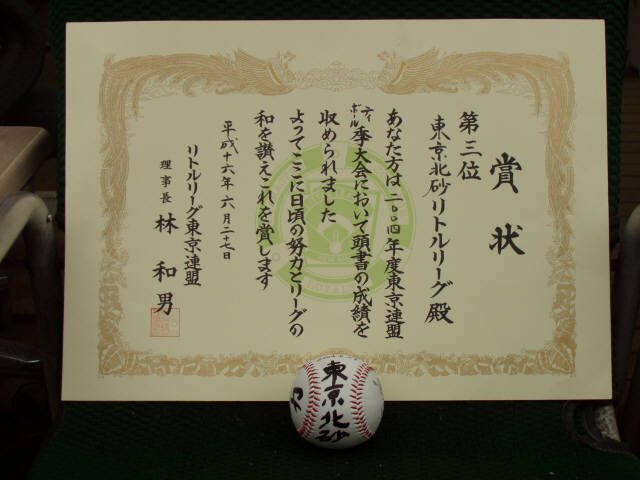 賞状
第三位
東京北砂リトルリーグ殿
あなた方は二〇〇四年度東京連盟
ティーボール季大会において頭書の成績を
収められました
よってここに日頃の努力とリーグの
和を讃えこれを賞します
平成十六年六月二十七日
リトルリーグ東京連盟
理事長 林和男
東京
北砂